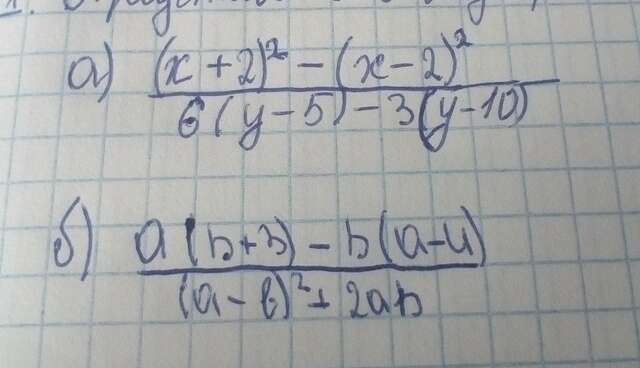 1.
а) (x + 2)² − (x − 2)²
6(y − 5) − 3(y − 10)
б) a(b + 3) − b(a − 4)
(a − b)² + 2ab